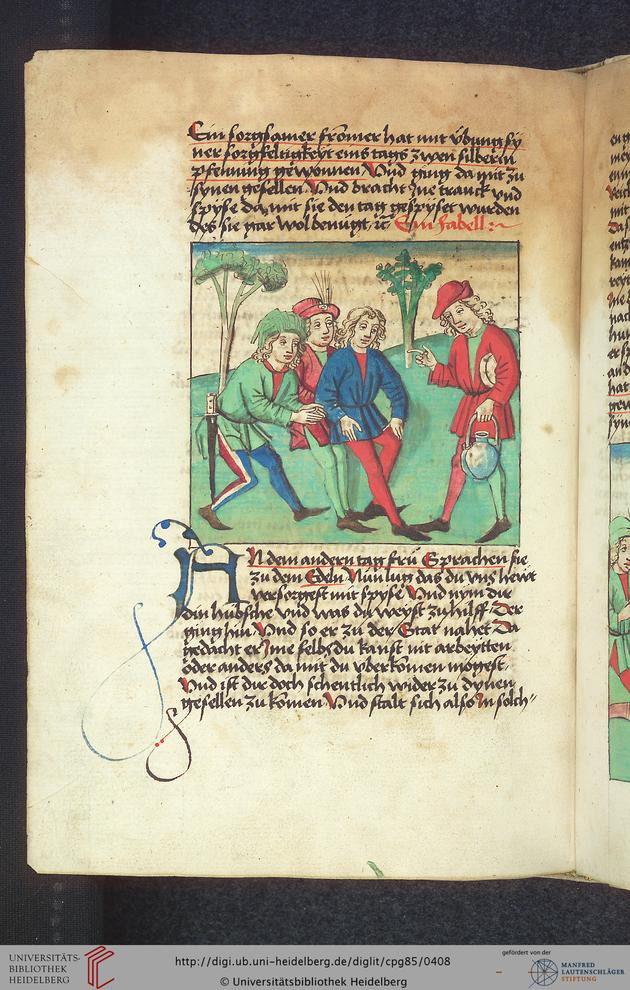 Ein sorgsamer fromer hat mit vbung sy
ner sorgfeltigkeyt eins tags zwen silberin
pfenning gewonnen Vnd ging da mit zu
synen gesellen Vnd bracht Ine tranck vnd
spyse da mit sie den tag gespyset wurden
des sie gar wol benugt ꝛc Ein fabell :~
An dem andern tag fru Sprachen sie
zu dem Edeln Nun lug das du vns hewt
versorgest mit spyse Vnd nym die
din hubsche vnd was du weyst zu hilff Der
ging hin Vnd so er zu der Stat nahet Da
gedacht er Ime selbs du kanst nit arbeytten
oder anders da mit du vberkomen mogest
Vnd ist dir doch schentlich wider zu dynen
gesellen zu komen Vnd stalt sich also In solch"
UNIVERSITÄTS-
BIBLIOTHEK
HEIDELBERG
http://digi.ub.uni-heidelberg.de/diglit/cpg85/0408
© Universitätsbibliothek Heidelberg
gefördert von der
MANFRED
LAUTENSCHLÄGER
STIFTUNG